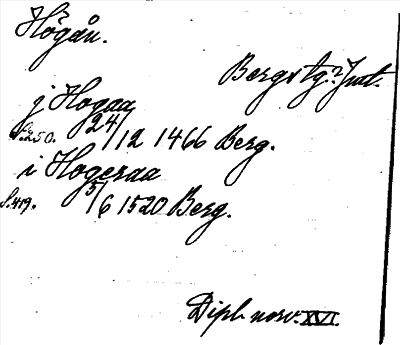 Högån.
Bergs tg? Jmt.
j Hogaa
S.250. 24/12 1466 Berg.
i Hogeraa
S.419. 5/6 1520 Berg.
Dipl. norv. XVI.